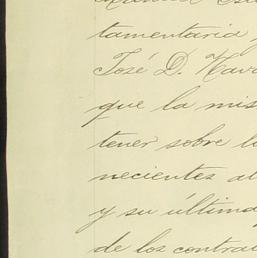 tamentaria
José D. Nava
que la mis
tener sobre l
necientes al
y su última
de los contra